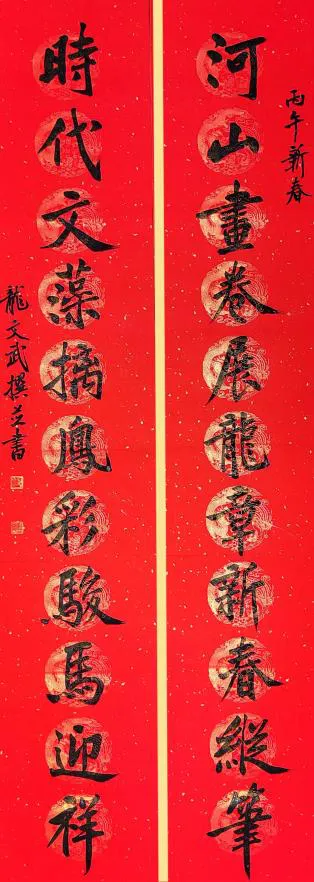 丙午新春
河山畫卷展龍章新春縱筆
時代文藻摛鳳彩駿馬迎祥
龍文武撰並書